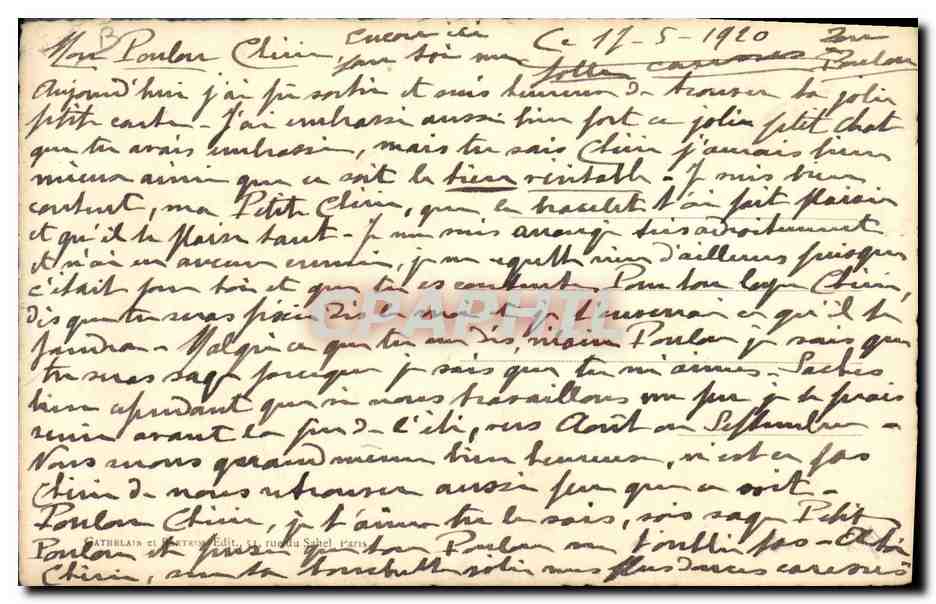 Mon Poulou Chéri Ce 17-5-1920
encore ici pour toi mes folles caresses Ton Poulou
Aujourd'hui j'ai pu sortir et suis heureux de trouver ta jolie
petite carte - J'ai embrassé aussi bien fort ce joli petit chat
que tu avais embrassé, mais tu sais Chéri j'aurais bien
mieux aimé que ce soit le bien véritable - Je suis bien
content, ma Petite Chérie, que le bracelet t'ai fait plaisir
et qu'il te plaise tant - Je me suis arrangé très adroitement
et n'ai eu aucun ennui, je ne regrette rien d'ailleurs puisque
c'était pour toi et que tu es content. Pour ton loge Chéri,
dis que tu seras fixée dis le moi et je t'enverrai ce qu'il te
faudra - Malgré ce que tu me dis, mon Poulou je sais que
tu seras sage puisque je sais que tu m'aimes - Saches
bien cependant que si nous travaillons un peu je te ferais
venir avant la fin de l'été, vers Août ou Septembre -
Nous serons quand même bien heureux, n'est ce pas
Chéri de nous retrouver aussi peu que ce soit -
Poulou Chéri, je t'aime tu le sais, sois sage Petit
Poulou et pense que ton Poulou ne t'oublie pas - A toi
Chéri, sur ta bouchette jolie mes plus douces caresses
CATHELAIN et Edit., 51, rue du Sahel Paris
CPAPHIL